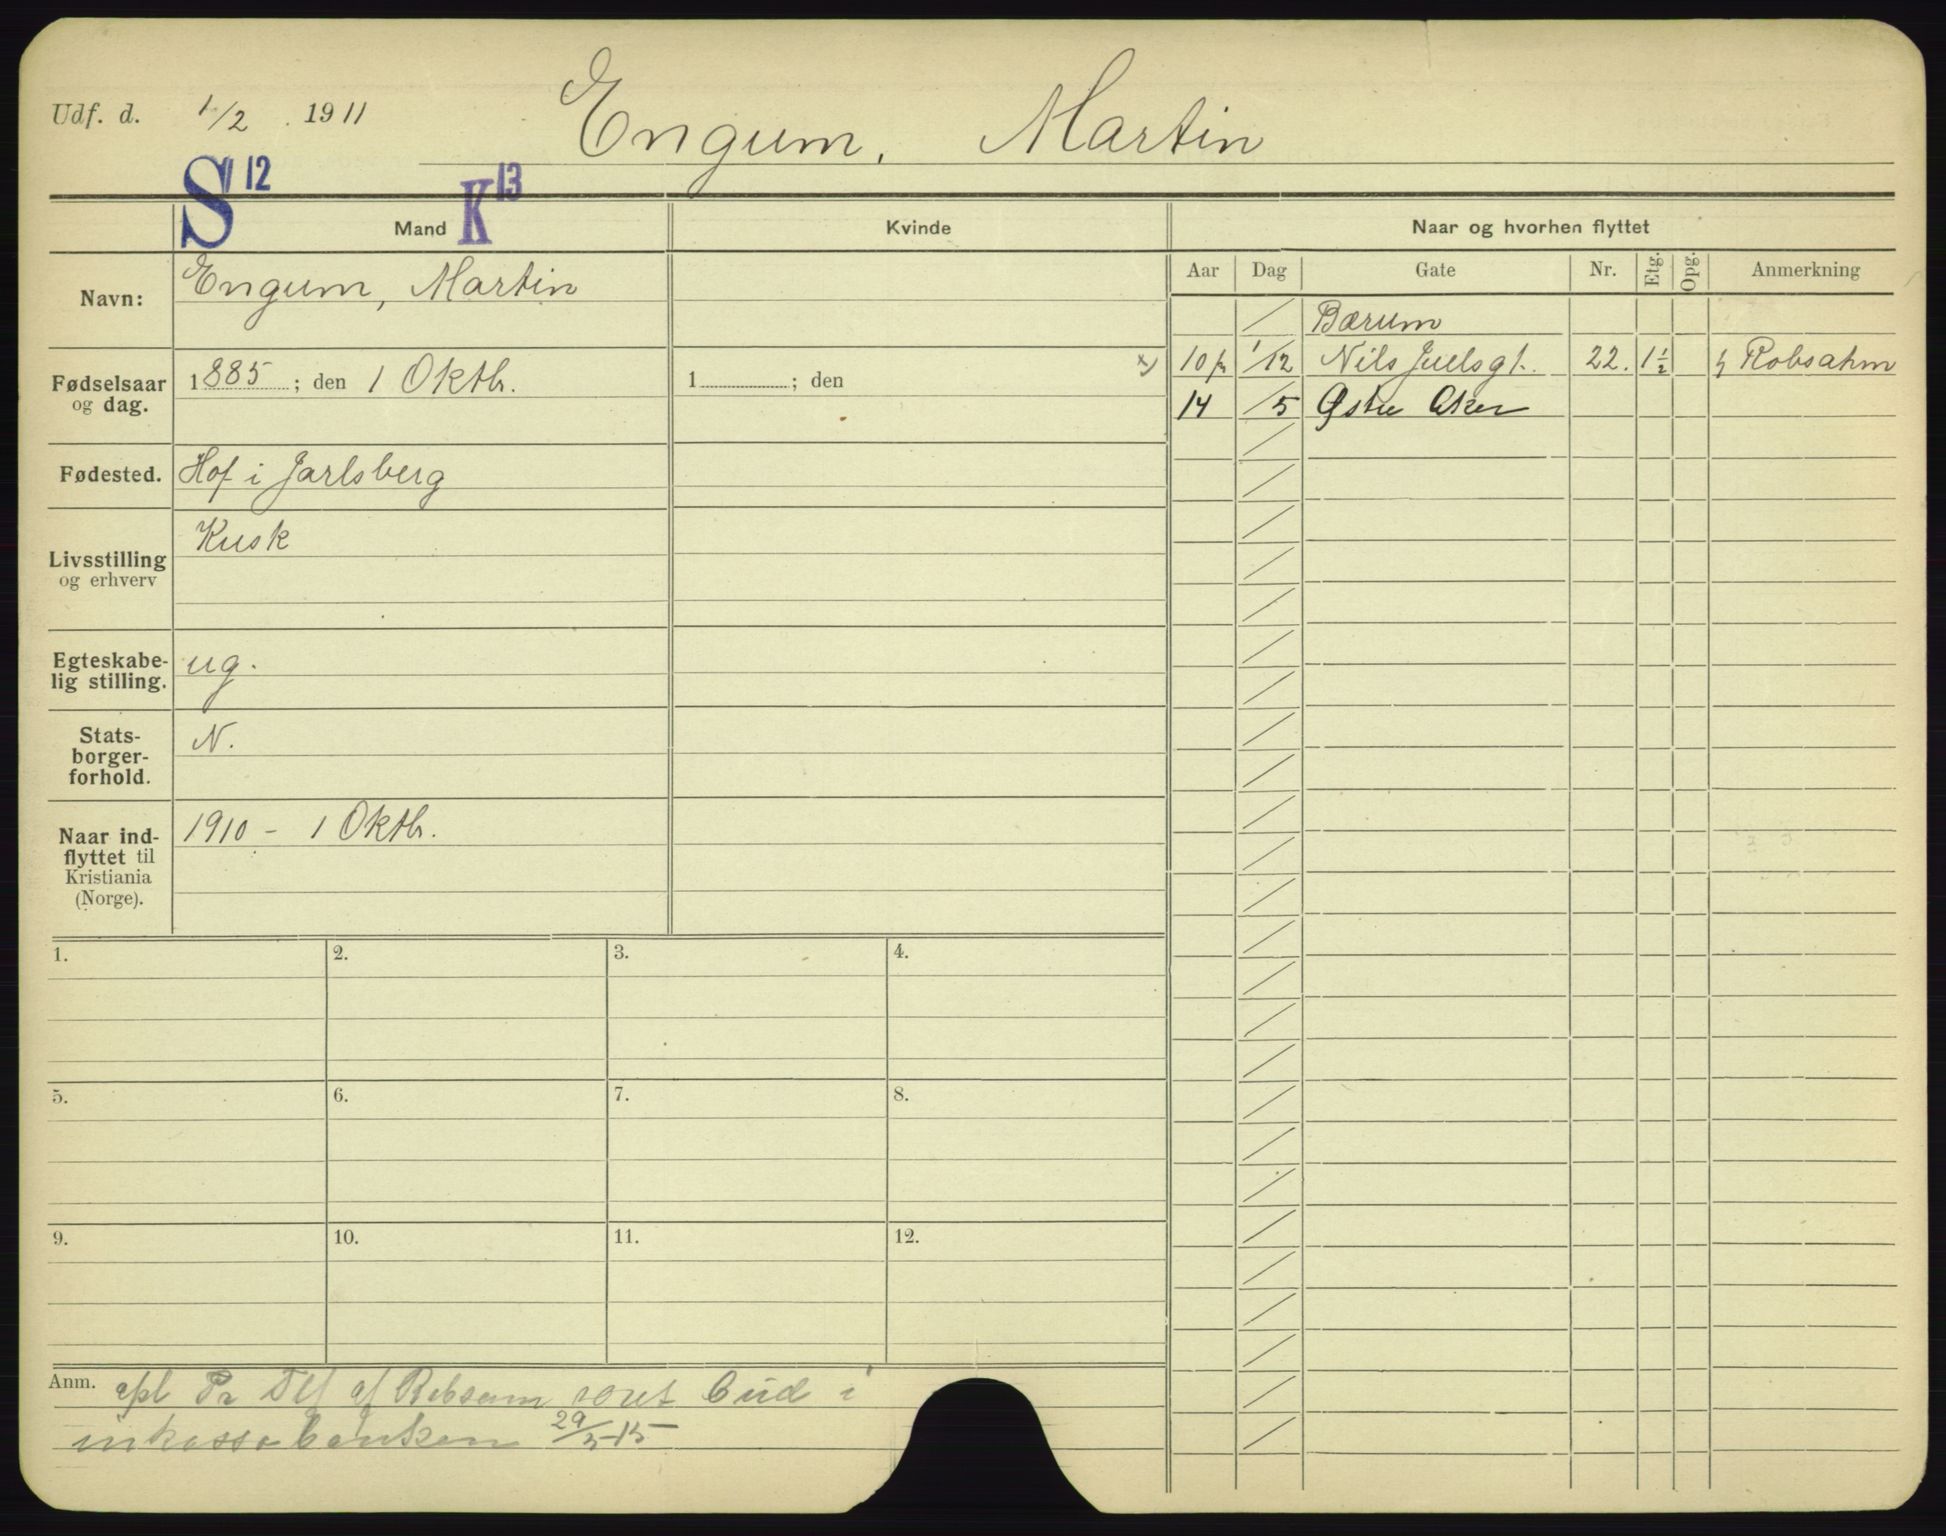 Udf. d. 1/2 1911 Engum, Martin
S 12 K 13
Mand Kvinde Naar og hvorhen flyttet
Aar Dag Gate Nr. Etg. Opg. Anmerkning
Navn: Engum, Martin
/ Bærum
10 1/12 Nils Juelsgt. 22. 1 1/2 Robsahm
14 /5 Østre Aker
Fødselsaar og dag. 1885 ; den 1 Oktbr. 1 ; den
Fødested. Hof i Jarlsberg
Livsstilling og erhverv Kusk
Egteskabe-
lig stilling. ug.
Stats-
borger-
forhold. N.
Naar ind-
flyttet til
Kristiania
(Norge). 1910 - 1 Oktbr.
1. 2. 3. 4.
5. 6. 7. 8.
9. 10. 11. 12.
Anm. opl Pr Tlf af Robsam været bud i
inkassobanken 29/5-15